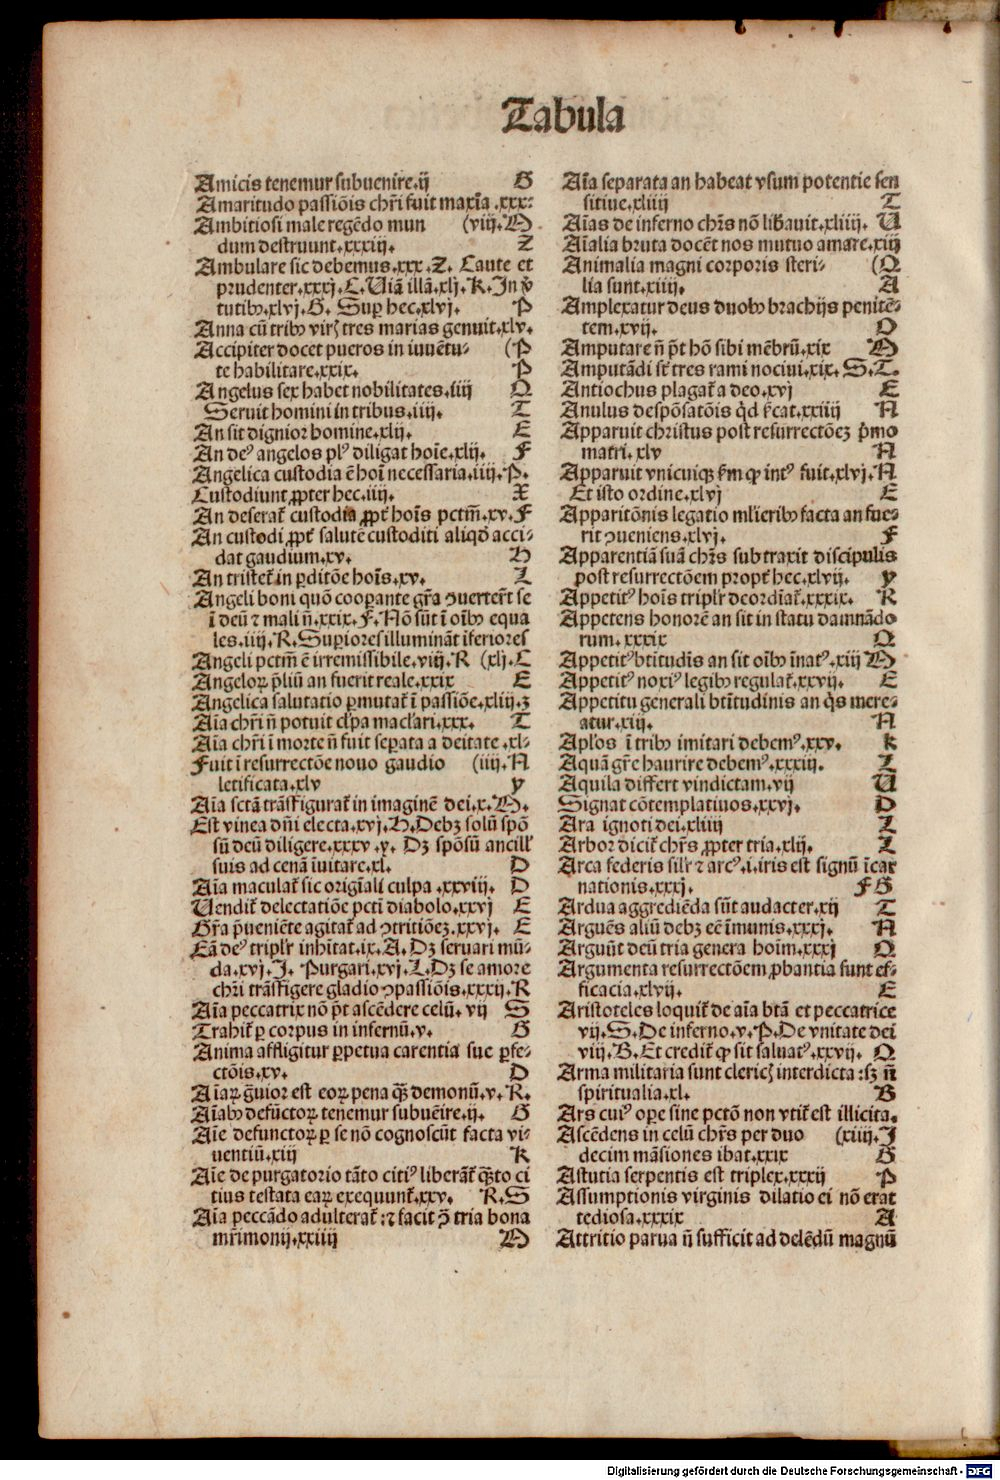 Tabula
Amicis tenemur subuenire.ij G
Amaritudo passiõis chr̃i fuit maxĩa .xxx:
Ambitiosi male regẽdo mun (viij.M.
dum destruunt.xxxiij. Z
Ambulare sic debemus.xxx.Z. Caute et
prudenter.xxxj.C.Uiã illã.xlj.K.In v̾
tutibꝫ.xlvj.G. Suꝑ hec.xlvj. P
Anna cũ tribꝫ viri tres marias genuit.xlv.
Accipiter docet pueros in iuuẽtu- (P
te habilitare.xxix. P
Angelus sex habet nobilitates.iiij Q
Seruit homini in tribus.iiij. T
An sit dignior homine.xlij. E
An deꝰ angelos plꝰ diligat hoĩe.xlij. F
Angelica custodia ẽ hoĩ necessaria.iiij.P.
Custodiunt ꝓpter hec.iiij. X
An deserat̃ custodia ꝓpt̃ hoĩs pctm̃.xv.F
An custodi ꝓpt̃ salutẽ custoditi aliqd̾ acci-
dat gaudium.xv. H
An tristet̃ in ꝑditõe hoĩs.xv. L
Angeli boni quõ cooꝑante gr̃a ꝯuertert̃ se
ĩ deũ ⁊ mali ñ.xxix.F.Nõ sũt ĩ oĩbꝫ equa
les.iij.R.Superiores illuminãt ĩferiores
Angeli pctm̃ ẽ irremissibile.viij.R (xlj.C
Angeloꝝ p̃liũ an fuerit reale.xxix E
Angelica salutatio ꝑmutat̃ ĩ passiõe.xliij.ʒ
Aĩa chr̃i ñ potuit cl̃pa macl̃ari.xxx. T
Aĩa chr̃i ĩ morte ñ fuit seꝑata a deitate .xl-
Fuit ĩ resurrectõe nouo gaudio (iiij.N
letificata.xlv y
Aĩa sctã trãsfigurat̃ in imaginẽ dei.x.M.
Est vinea dñi electa.xvj.H.Debꝫ solũ spõ
sũ deũ diligere.xxxv.v. Dꝫ spõsũ ancill̃
suis ad cenã ĩuitare.xl. D
Aĩa maculat̃ sic orig̃iali culpa .xxviij. D
Uendit̃ delectatiõe pcti diabolo.xxvj E
Gr̃a p̃ueniẽte agitat̃ ad ꝯtritiõeꝫ.xxvj. E
Eã deꝰ tripl̃r inhĩtat.ix.A.Dꝫ seruari mũ-
da.xvj.J. Purgari.xvj.L.Dꝫ se amore
chr̃i trãsfigere gladio ꝯpassiõis.xxxij.R
Aĩa peccatrix nõ p̃t ascẽdere celũ. vij S
Trahit̃ ꝑ corpus in infernũ.v. G
Anima affligitur ꝑpetua carentia sue ꝑfe-
ctõis.xv. D
Aĩaꝝ g̃uior est eoꝝ pena q̃ꝫ demonũ.v.R.
Aĩabꝫ defũctoꝝ tenemur subuẽire.ij. G
Aĩe defunctoꝝ ꝑ se nõ cognoscũt facta vi-
uentiũ.xiij K
Aĩe de purgatorio tãto citiꝰ liberãt̃ q̃ꝫto ci
tius testata eaꝝ exequunt̃.xxv. R.S
Aĩa peccãdo adulterat̃ :⁊ facit ꝯ̃ tria bona
mr̃imonij.xxiiij M
Aĩa separata an habeat vsum potentie sen
sitiue.xliiij T
Aĩas de inferno chr̃s nõ libauit.xliiij. U
Aĩalia bruta docẽt nos mutuo amare.xiij
Animalia magni corporis steri- (Q
lia sunt.xiiij. A
Amplexatur deus duobꝫ brachijs penitẽ-
tem.xvij. O
Amputare ñ p̃t hõ sibi mẽbrũ.xix M
Amputãdi st̃ tres rami nociui.xix.S.T.
Antiochus plagat̃ a deo.xvj E
Anulus despõsatõis qd̾ s̾cat.xxiiij N
Apparuit christus post resurrectõeꝫ p̾mo
matri.xlv N
Apparuit vnicuiqꝫ s̾m ꝙ intꝰ fuit.xlvj.N
Et isto ordine.xlvj E
Apparitõnis legatio ml̃ieribꝫ facta an fue-
rit ꝯueniens.xlvj. F
Apparentiã suã chr̃s subtraxit discipulis
post resurrectõem propt̃ hec.xlvij. y
Appetitꝰ hoĩs tripl̃r deordĩat̃.xxxix. R
Appetens honorẽ an sit in statu damnãdo
rum.xxxix Q
Appetitꝰ btĩtudĩs an sit oĩbꝫ ĩnatꝰ.xiij M
Appetitꝰ noxiꝰ legibꝫ regulat̃.xxvij. E
Appetitu generali btĩtudinis an q̾s mere-
atur.xiij. N
Apl̃os ĩ tribꝫ imitari debemꝰ.xxv. k
Aquã gr̃e haurire debemꝰ.xxxiij. L
Aquila differt vindictam.vij U
Signat cõtemplatiuos.xxvj. D
Ara ignoti dei.xliiij L
Arbor dicit̃ chr̃s ꝓpter tria.xlij. L
Arca federis sil̃r ⁊ arcꝰ.i.iris est signũ ĩcar
nationis.xxxj. F G
Ardua aggrediẽda sũt audacter.xij T
Arguẽs aliũ debꝫ eẽ ĩmunis.xxxj. N
Arguũt deũ tria genera hoĩm.xxxj Q
Argumenta resurrectõem ꝓbantia sunt ef-
ficacia.xlvij. E
Aristoteles loquit̃ de aĩa btã et peccatrice
vij.S.De inferno.v.P.De vnitate dei
viij.B.Et credit̃ ꝙ sit saluatꝰ.xxvij. Q
Arma militaria sunt clericis interdicta:sꝫ ñ
spiritualia.xl. B
Ars cuiꝰ oꝑe sine pctõ non vtit̃ est illicita.
Ascẽdens in celũ chr̃s per duo (xiiij.J
decim mãsiones ibat.xxix G
Astutia serpentis est triplex.xxxij P
Assumptionis virginis dilatio ei nõ erat
tediosa.xxxix A
Attritio parua ñ sufficit ad delẽdũ magnũ
Digitalisierung gefördert durch die Deutsche Forschungsgemeinschaft - DFG